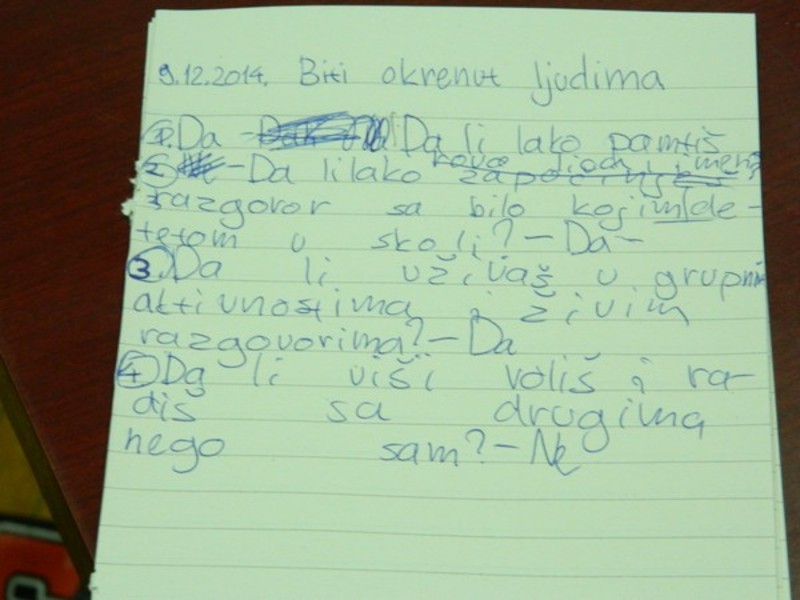 9.12.2014. Biti okrenut ljudima
1. Da - Da li lako pamtiš
nova lica i imena
2. - Da li lako započinješ
razgovor sa bilo kojim de-
tetom u skoli? - Da -
3. Da li uživaš u grupnim
aktivnostima i živim
razgovorima? - Da
4. Da li viši voliš i ra-
diš sa drugima
nego sam? - Ne